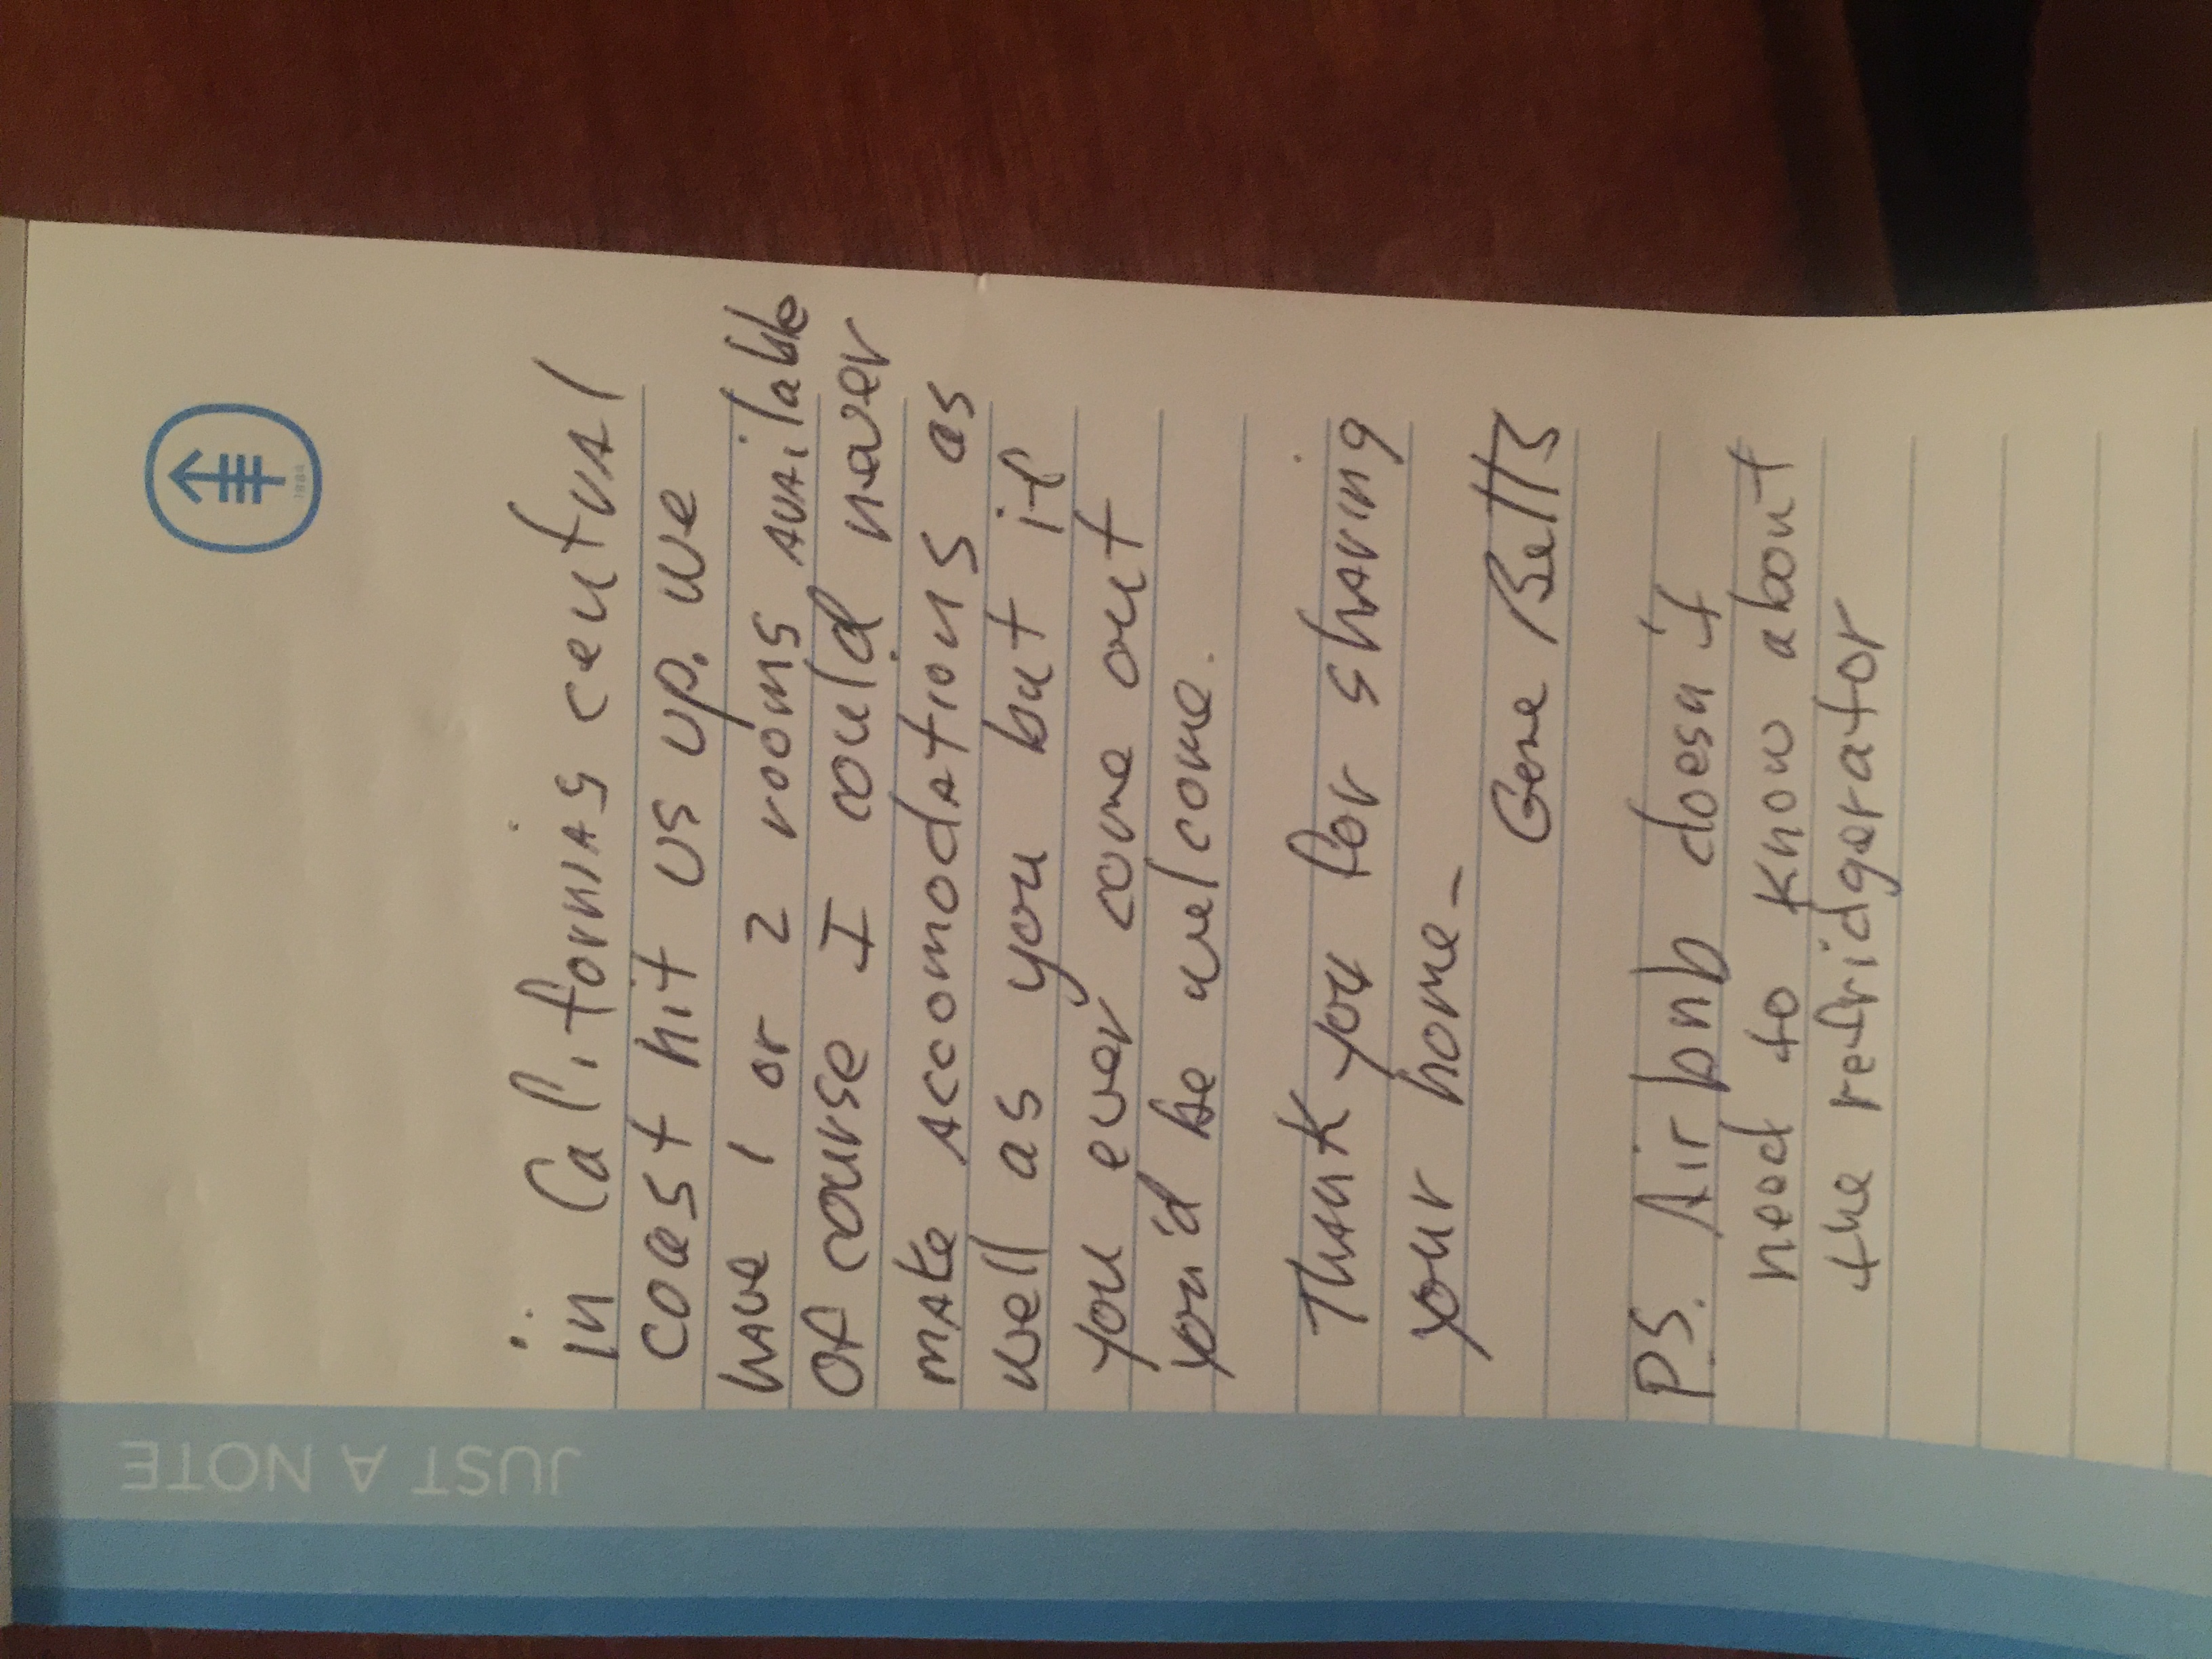 JUST A NOTE
1884
in Californias central
coast hit us up. we
have 1 or 2 rooms available
Of course I could never
make accomodations as
well as you but if
you ever come out
you'd be welcome.
Thank you for sharing
your home-
Gene Betts
P.S. Airbnb doesn't
need to know about
the refridgerator